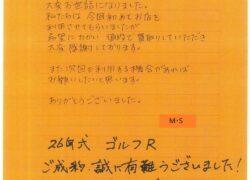 大変お世話になりました。
私たちは 今回初めてお店を
利用させてもらいましたが
希望に近い 値段で買取りしていただき
大変 感謝しております。
また次回も利用する機会があれば
お願いしたいと思います。
ありがとうございました。
M・S
26年式 ゴルフR
ご成約 誠に有難うございました!